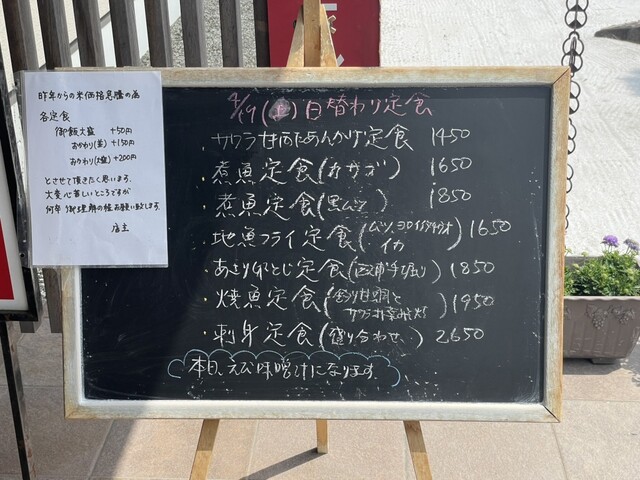 昨年からの米価格急騰の為
各定食
御飯大盛 +50円
おかわり(並) +150円
おかわり(大盛) +200円
とさせて頂きたく思います。
大変心苦しいところですが
何卒御理解の程お願い致します。
店主
4/19(土)日替わり定食
・サワラ甘酢あんかけ定食 1450
・煮魚定食(カサゴ) 1650
・煮魚定食(黒ムツ) 1850
・地魚フライ定食(ムツ イカ) 1650
・あさり卵とじ定食(手掘り) 1850
・焼魚定食(サワラ) 1950
・刺身定食(盛り合わせ) 2650
本日、えび味噌汁になります